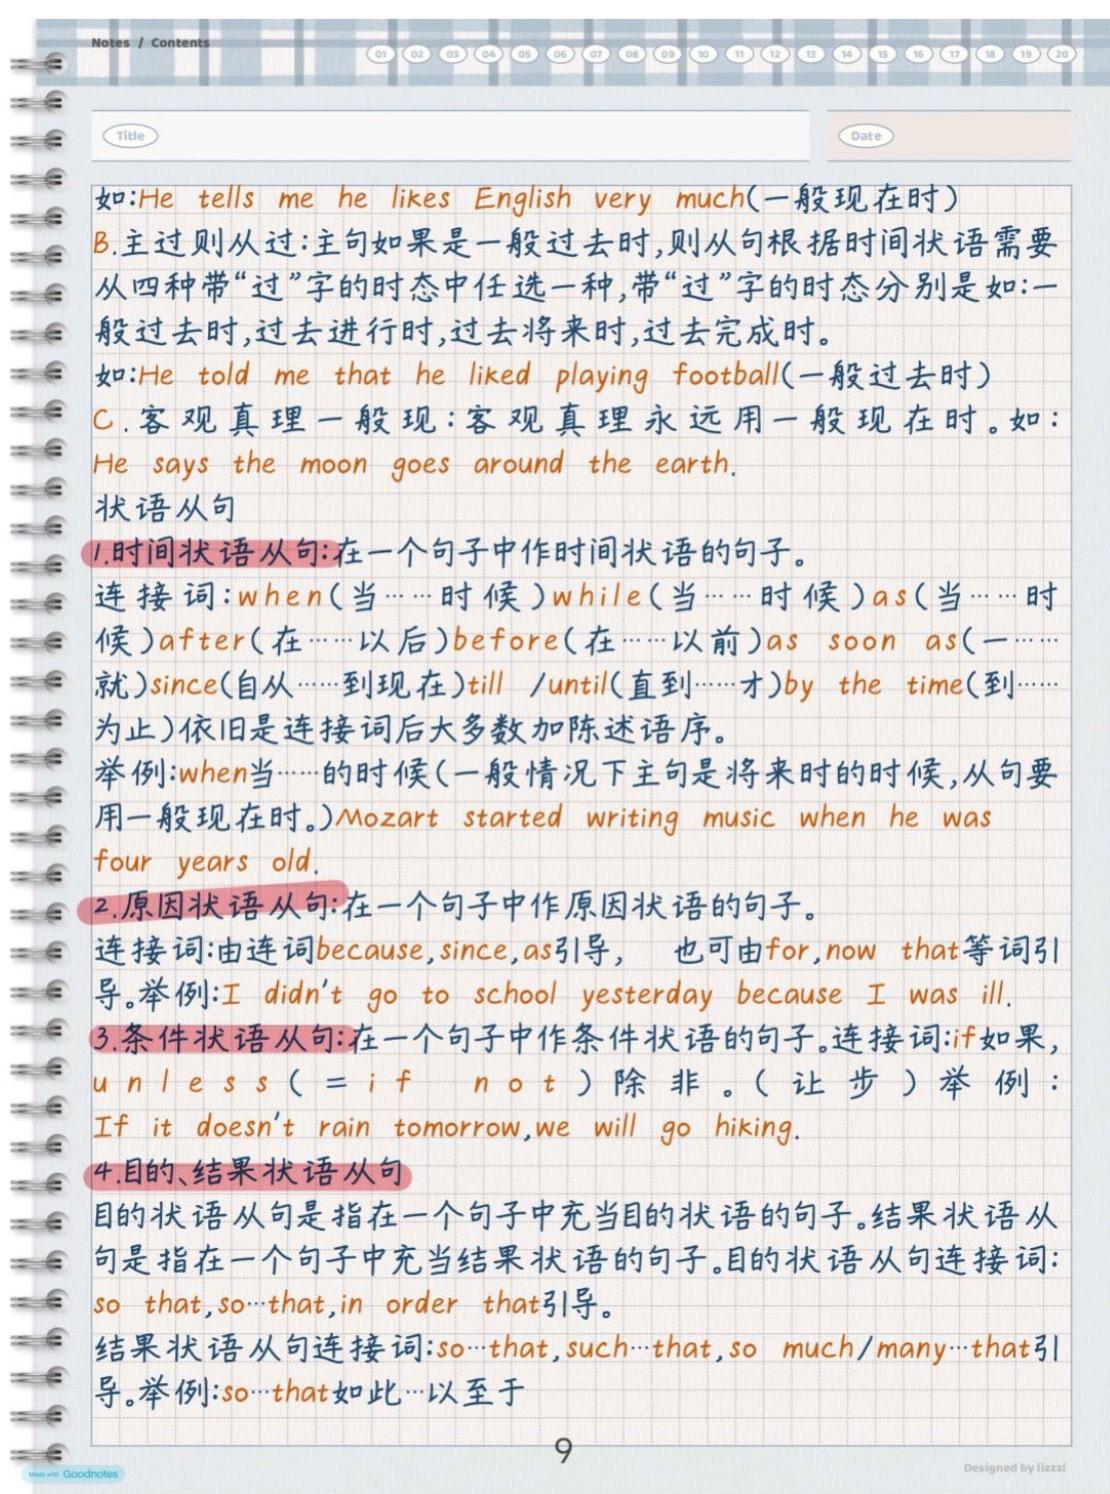 Notes / Contents
01 02 03 04 05 06 07 08 09 10 11 12 13 14 15 16 17 18 19 20
Title
Date
如:He tells me he likes English very much(一般现在时)
B.主过则从过:主句如果是一般过去时,则从句根据时间状语需要
从四种带“过”字的时态中任选一种,带“过”字的时态分别是如:一
般过去时,过去进行时,过去将来时,过去完成时。
如:He told me that he liked playing football(一般过去时)
C.客观真理一般现:客观真理永远用一般现在时。如:
He says the moon goes around the earth.
状语从句
1.时间状语从句:在一个句子中作时间状语的句子。
连接词:when(当……时候)while(当……时候)as(当……时
候)after(在……以后)before(在……以前)as soon as(一……
就)since(自从……到现在)till /until(直到……才)by the time(到……
为止)依旧是连接词后大多数加陈述语序。
举例:when当……的时候(一般情况下主句是将来时的时候,从句要
用一般现在时。)Mozart started writing music when he was
four years old.
2.原因状语从句:在一个句子中作原因状语的句子。
连接词:由连词because,since,as引导, 也可由for,now that等词引
导。举例:I didn't go to school yesterday because I was ill.
3.条件状语从句:在一个句子中作条件状语的句子。连接词:if如果,
unless(=if not)除非。(让步)举例:
If it doesn't rain tomorrow,we will go hiking.
4.目的、结果状语从句
目的状语从句是指在一个句子中充当目的状语的句子。结果状语从
句是指在一个句子中充当结果状语的句子。目的状语从句连接词:
so that,so…that,in order that引导。
结果状语从句连接词:so…that,such…that,so much/many…that引
导。举例:so…that如此…以至于
9
Made with Goodnotes
Designed by lizzzi